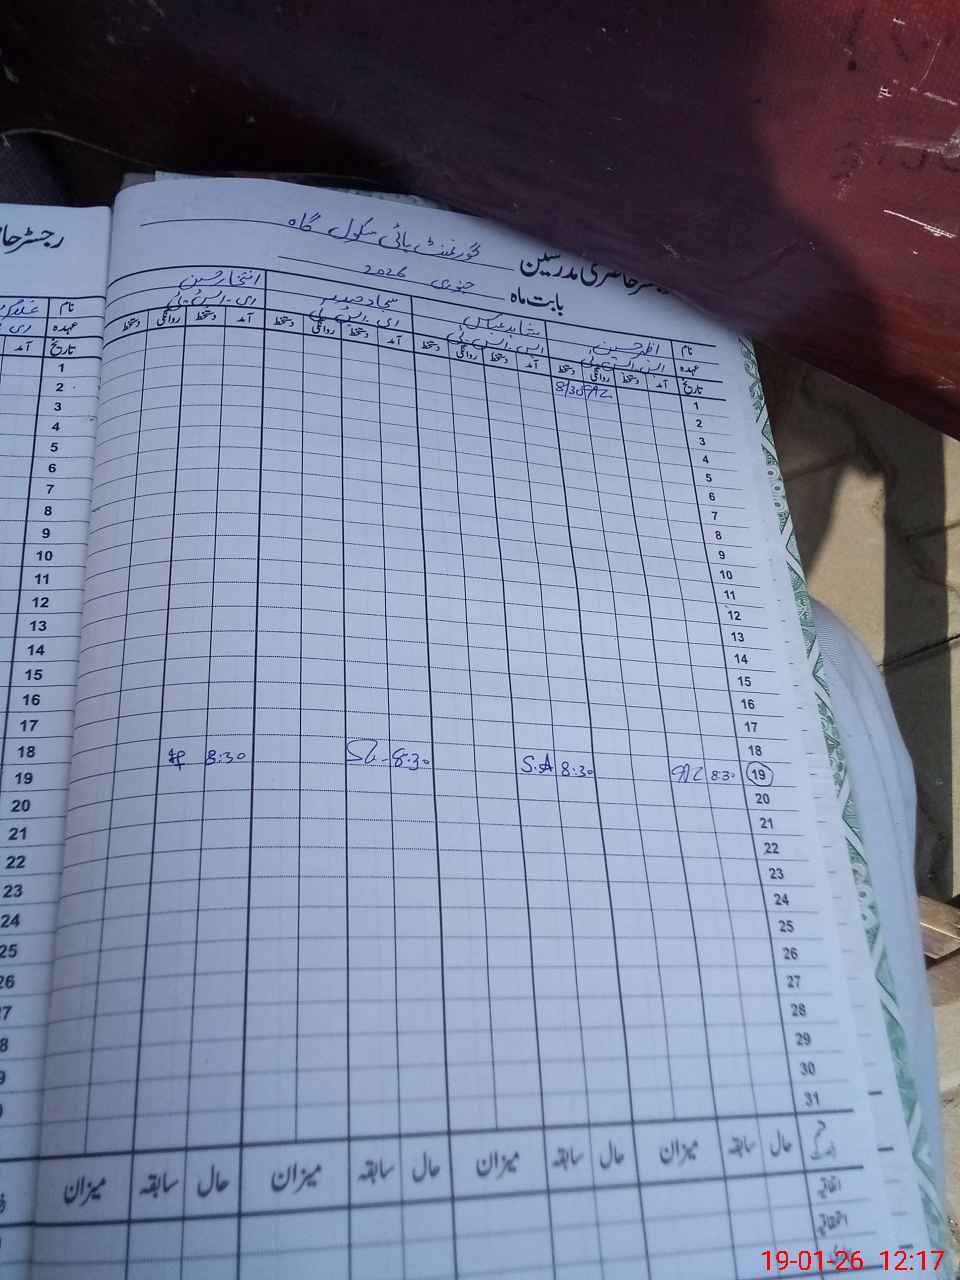 رجسٹر حا
رجسٹر حاضری مدرسین گورنمنٹ ہائی سکول گاہ
بابت ماہ جنوری 2026
نام اظہر حسین شاہد عباس سجاد حیدر افتخار حسین
عہدہ ایس۔ایس۔ٹی ایس۔ایس۔ٹی ای۔ایس۔ٹی ای۔ایس۔ٹی
تاریخ آمد دستخط روانگی دستخط آمد دستخط روانگی دستخط آمد دستخط روانگی دستخط آمد دستخط روانگی دستخط
نام
عہدہ
تاریخ آمد
1 8/30
2
3
4
5
6
7
8
9
10
11
12
13
14
15
16
17
18
19 8:30 8:30 S.A 8:30 8:30
20
21
22
23
24
25
26
27
28
29
30
31
1
2
3
4
5
6
7
8
9
10
11
12
13
14
15
16
17
18
19
20
21
22
23
24
25
26
27
28
29
30
حال سابقہ میزان حال سابقہ میزان حال سابقہ میزان حال سابقہ میزان
19-01-26 12:17